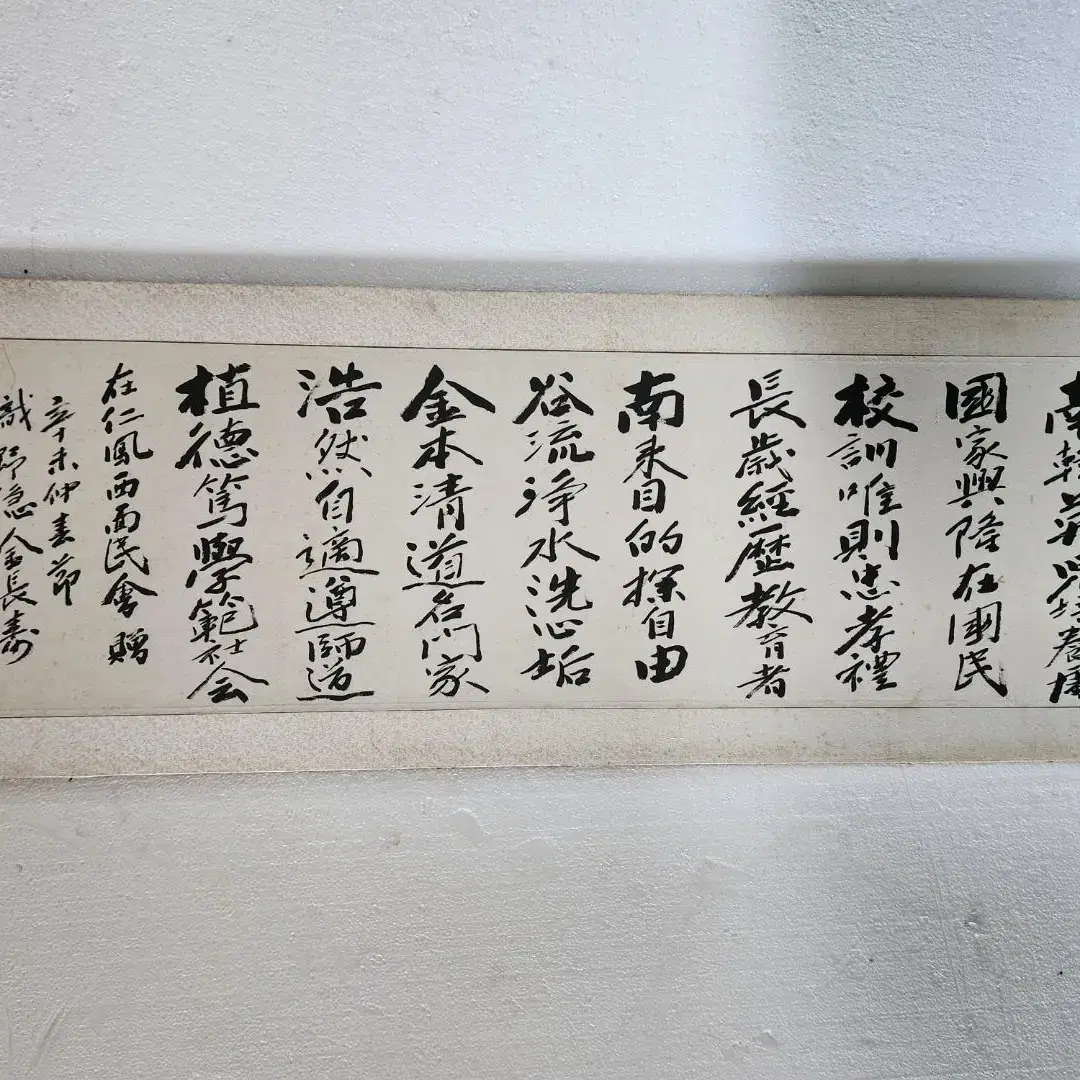 南韓英以培養
國家興隆在國民
校訓唯則忠孝禮
長歲經歷教育者
南來目的探自由
谷流浄水洗心垢
金本清道名門家
浩然自適遵師道
植德篤學範士会
在仁鳳西面民會 贈
辛未仲春節
隱 金長壽